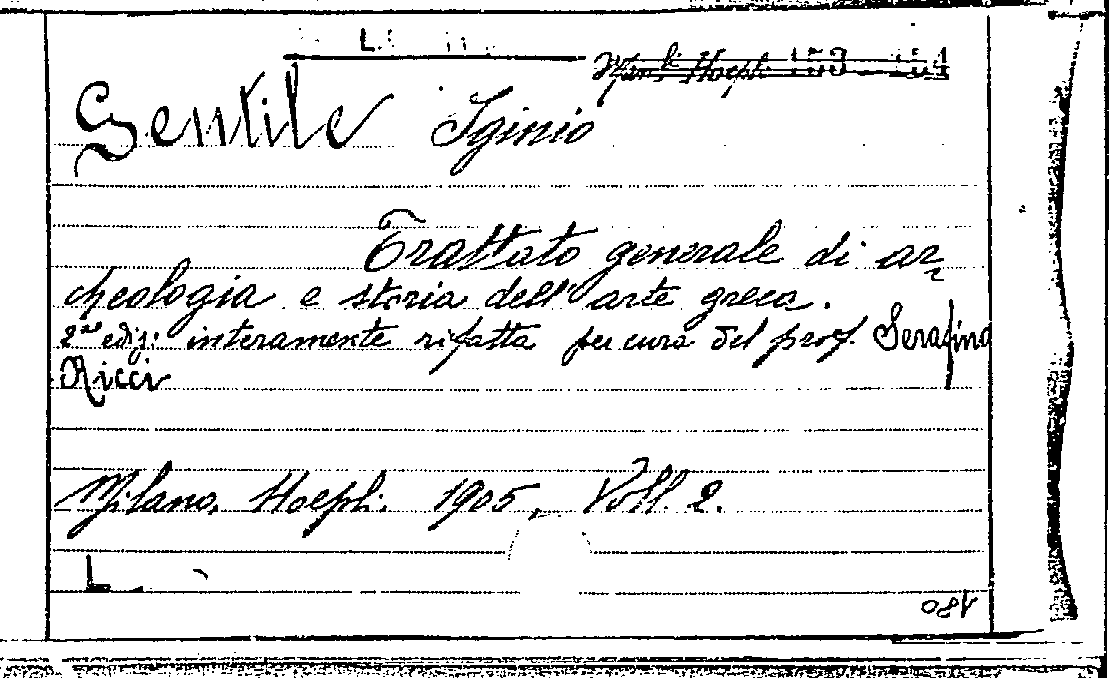 L.
Man.li Hoepli 153-154
Gentile Iginio
Trattato generale di ar
cheologia e storia dell'arte greca.
2ª ediz. interamente rifatta per cura del prof. Serafino
Ricci
Milano, Hoepli. 1905, Voll. 2.
L
180